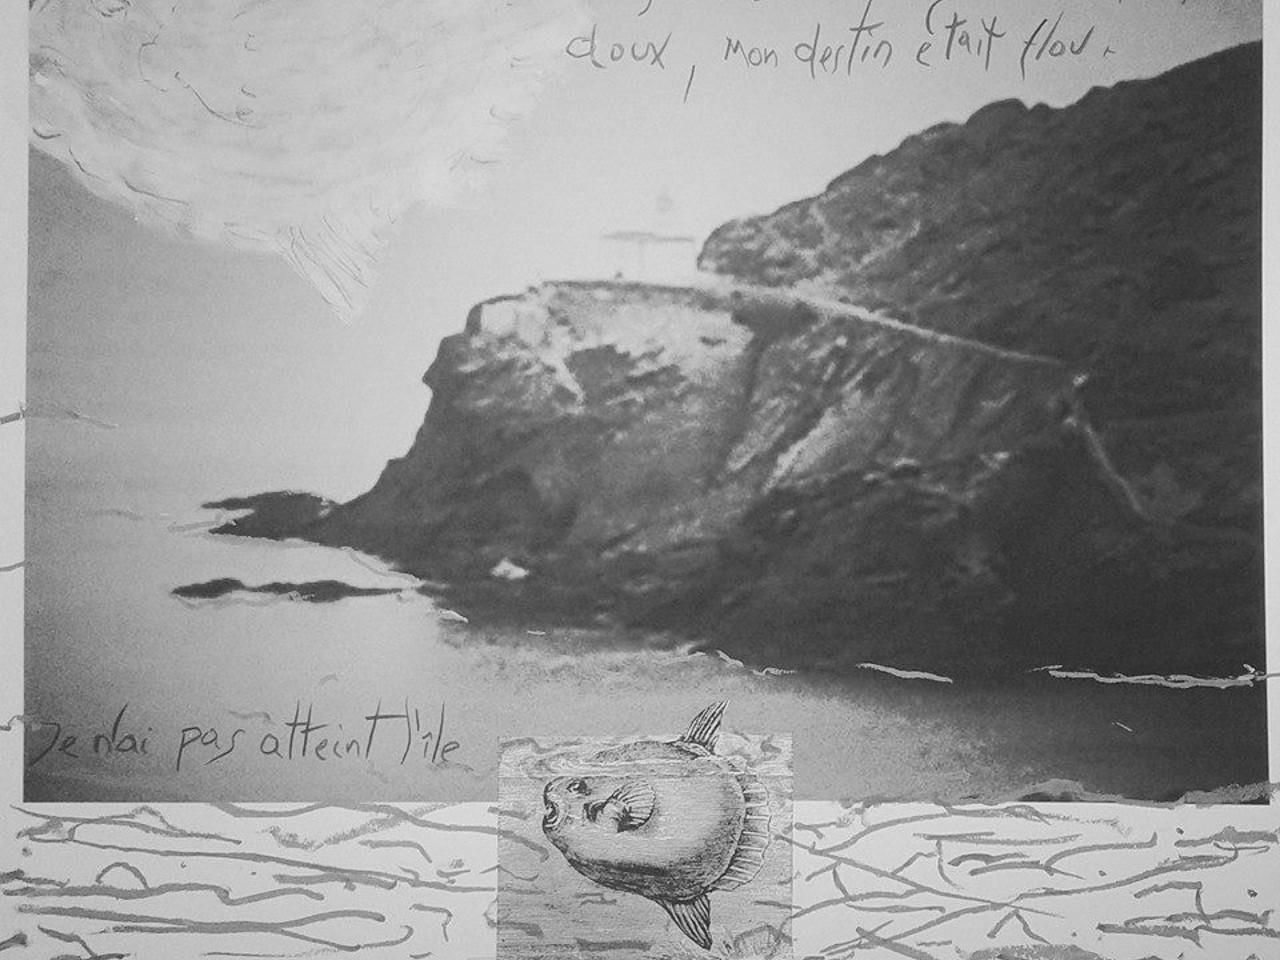 doux, mon destin était flou.
Je n'ai pas atteint l'île